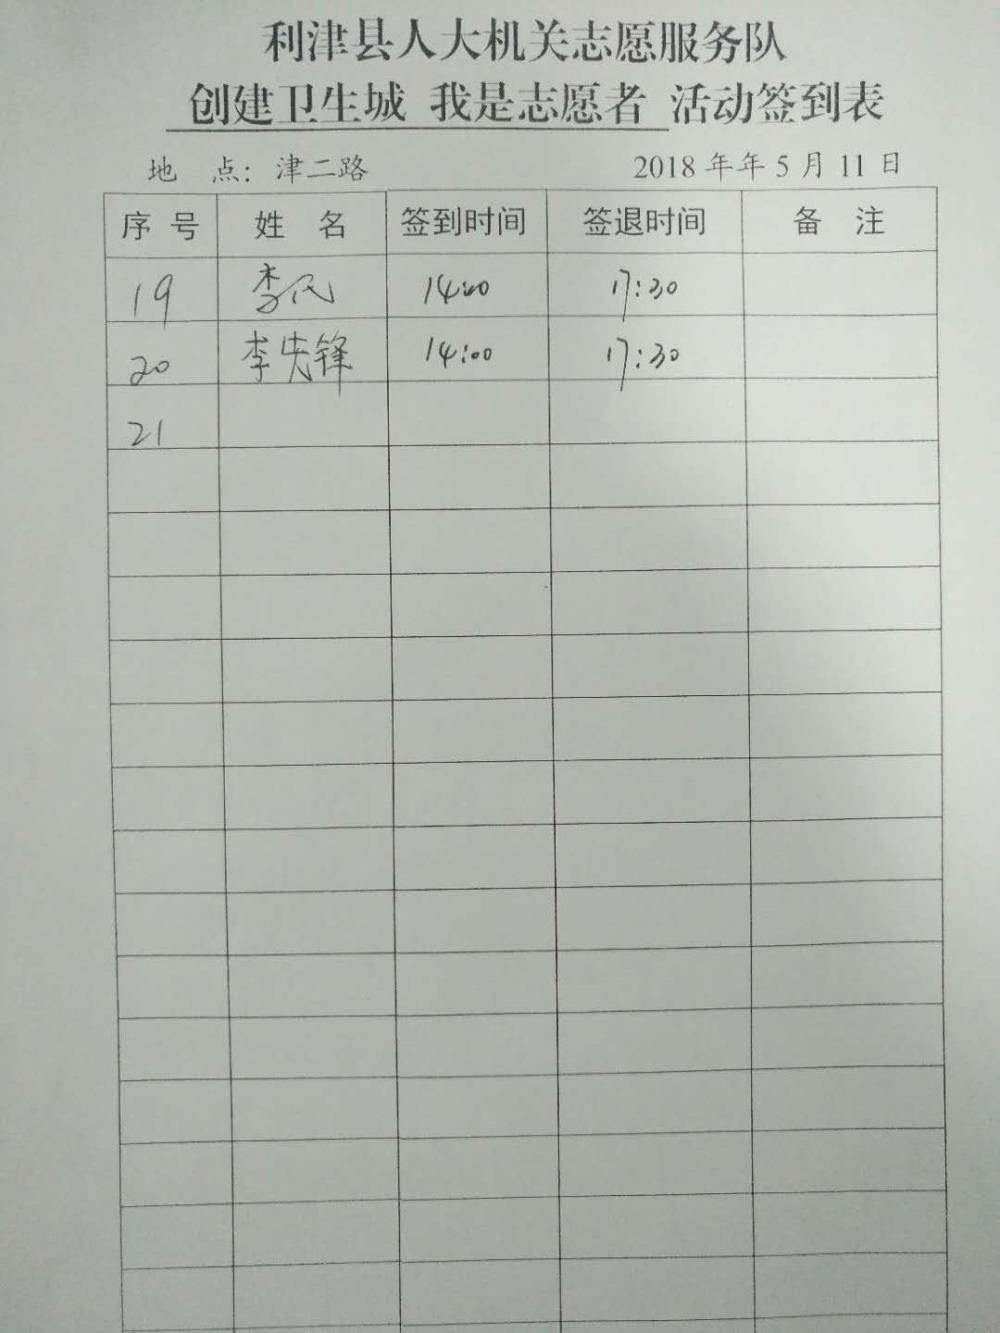 利津县人大机关志愿服务队
创建卫生城 我是志愿者 活动签到表
地 点：津二路 2018年年5月11日
序号 姓名 签到时间 签退时间 备注
19 李民 14:00 17:30
20 李先锋 14:00 17:30
21